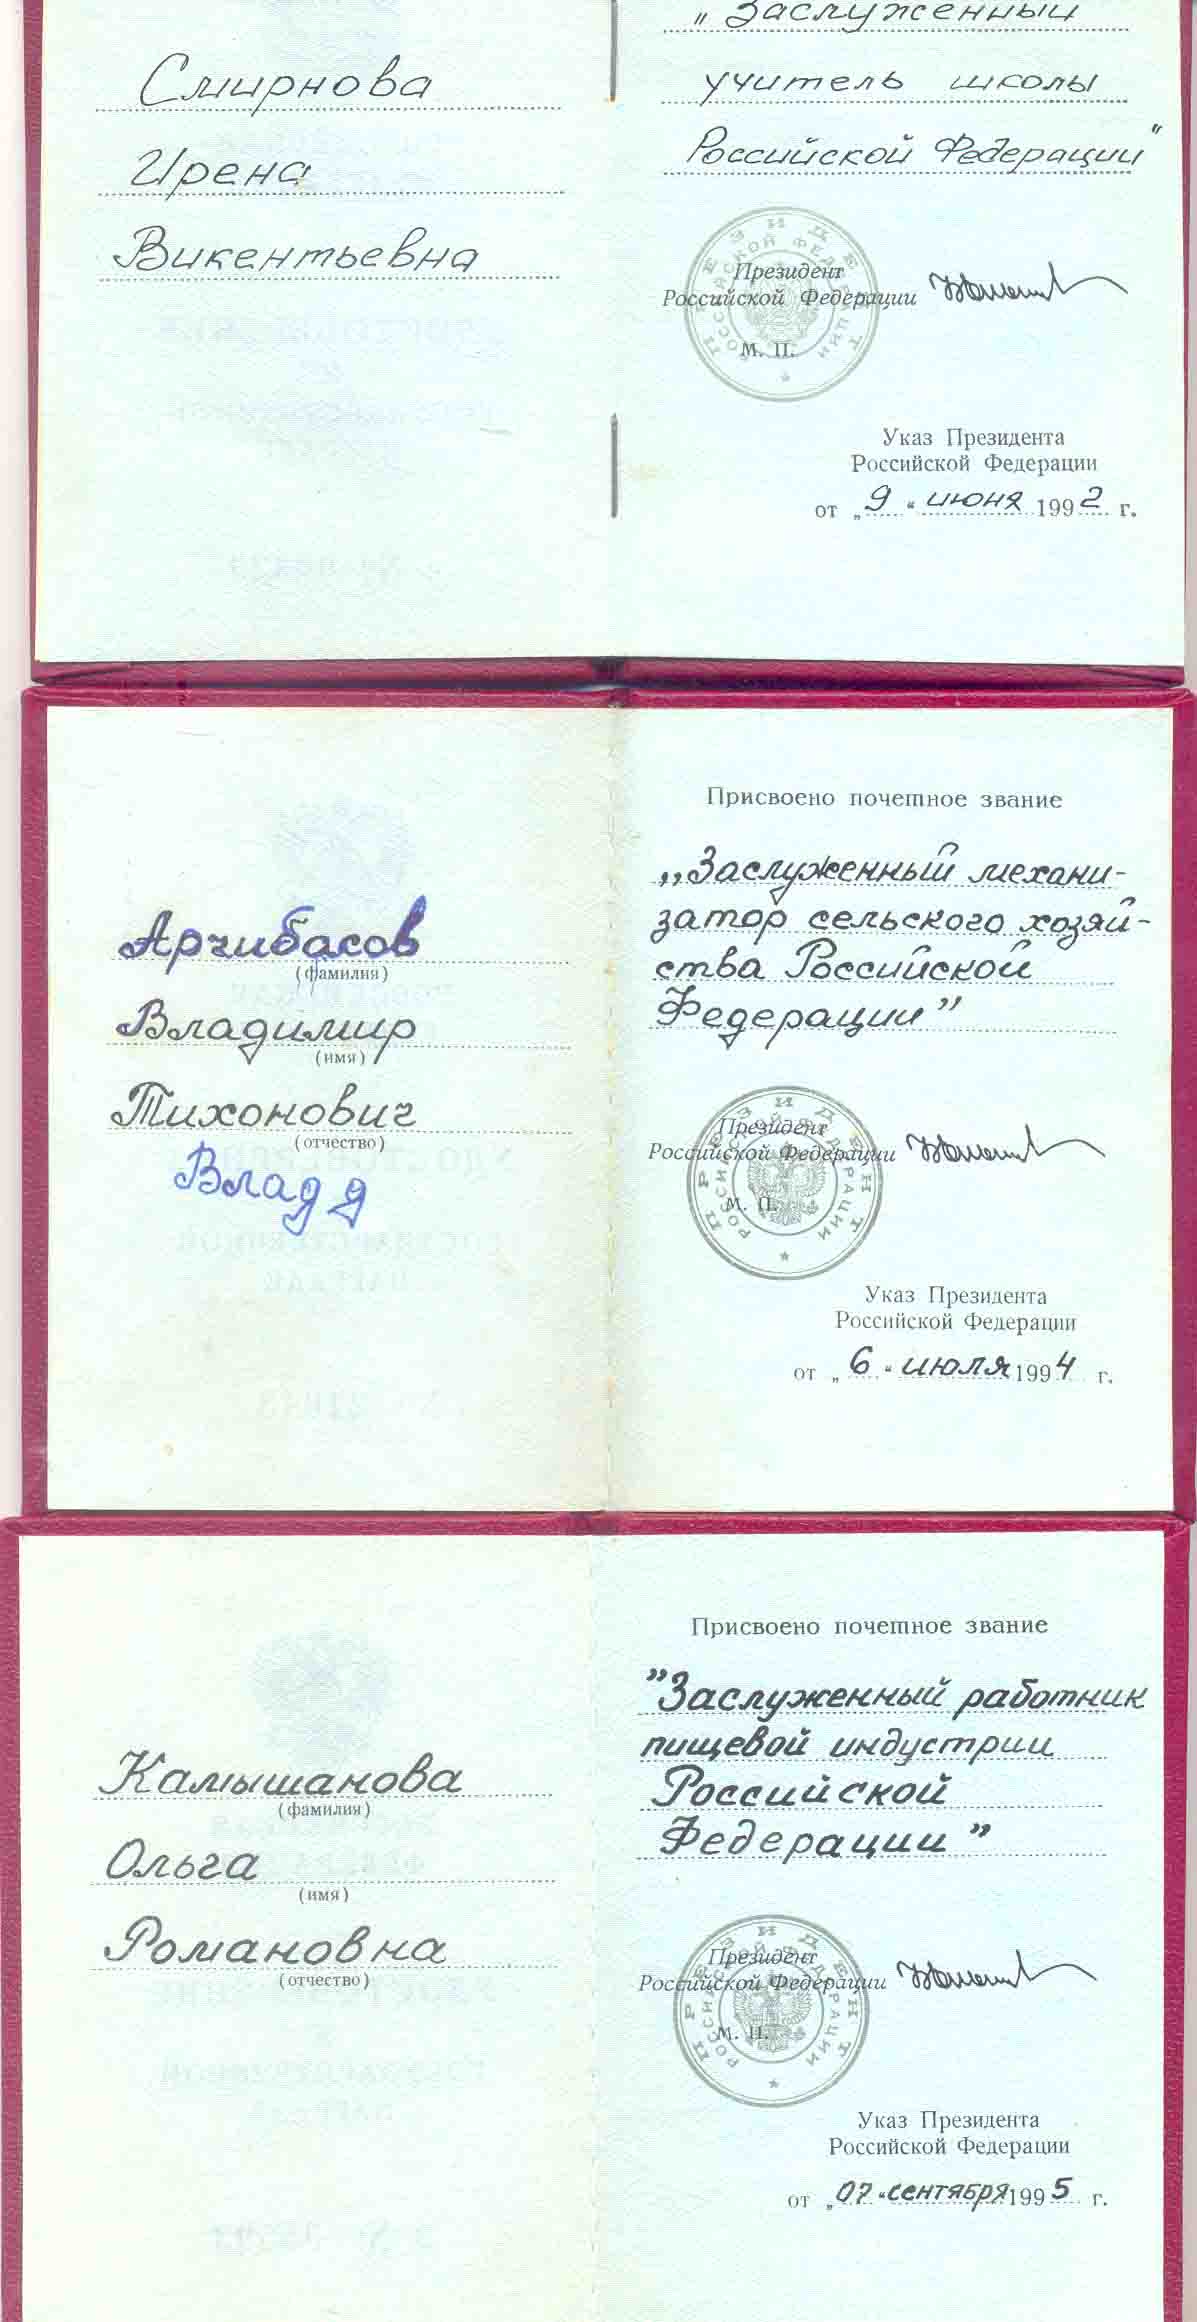 Смирнова
Ирена
Викентьевна
„Заслуженный
учитель школы
Российской Федерации"
Президент
Российской Федерации
М. П.
ПРЕЗИДЕНТ
РОССИЙСКОЙ ФЕДЕРАЦИИ
Указ Президента
Российской Федерации
от „9“ июня 1992 г.
Арчибасов
(фамилия)
Владимир
(имя)
Тихонович
(отчество)
Влад д
Присвоено почетное звание
„Заслуженный механи-
затор сельского хозяй-
ства Российской
Федерации”
Президент
Российской Федерации
М. П.
ПРЕЗИДЕНТ
РОССИЙСКОЙ ФЕДЕРАЦИИ
Указ Президента
Российской Федерации
от „6“ июля 1994 г.
Камышанова
(фамилия)
Ольга
(имя)
Романовна
(отчество)
Присвоено почетное звание
”Заслуженный работник
пищевой индустрии
Российской
Федерации”
Президент
Российской Федерации
М. П.
ПРЕЗИДЕНТ
РОССИЙСКОЙ ФЕДЕРАЦИИ
Указ Президента
Российской Федерации
от „07“ сентября 1995 г.